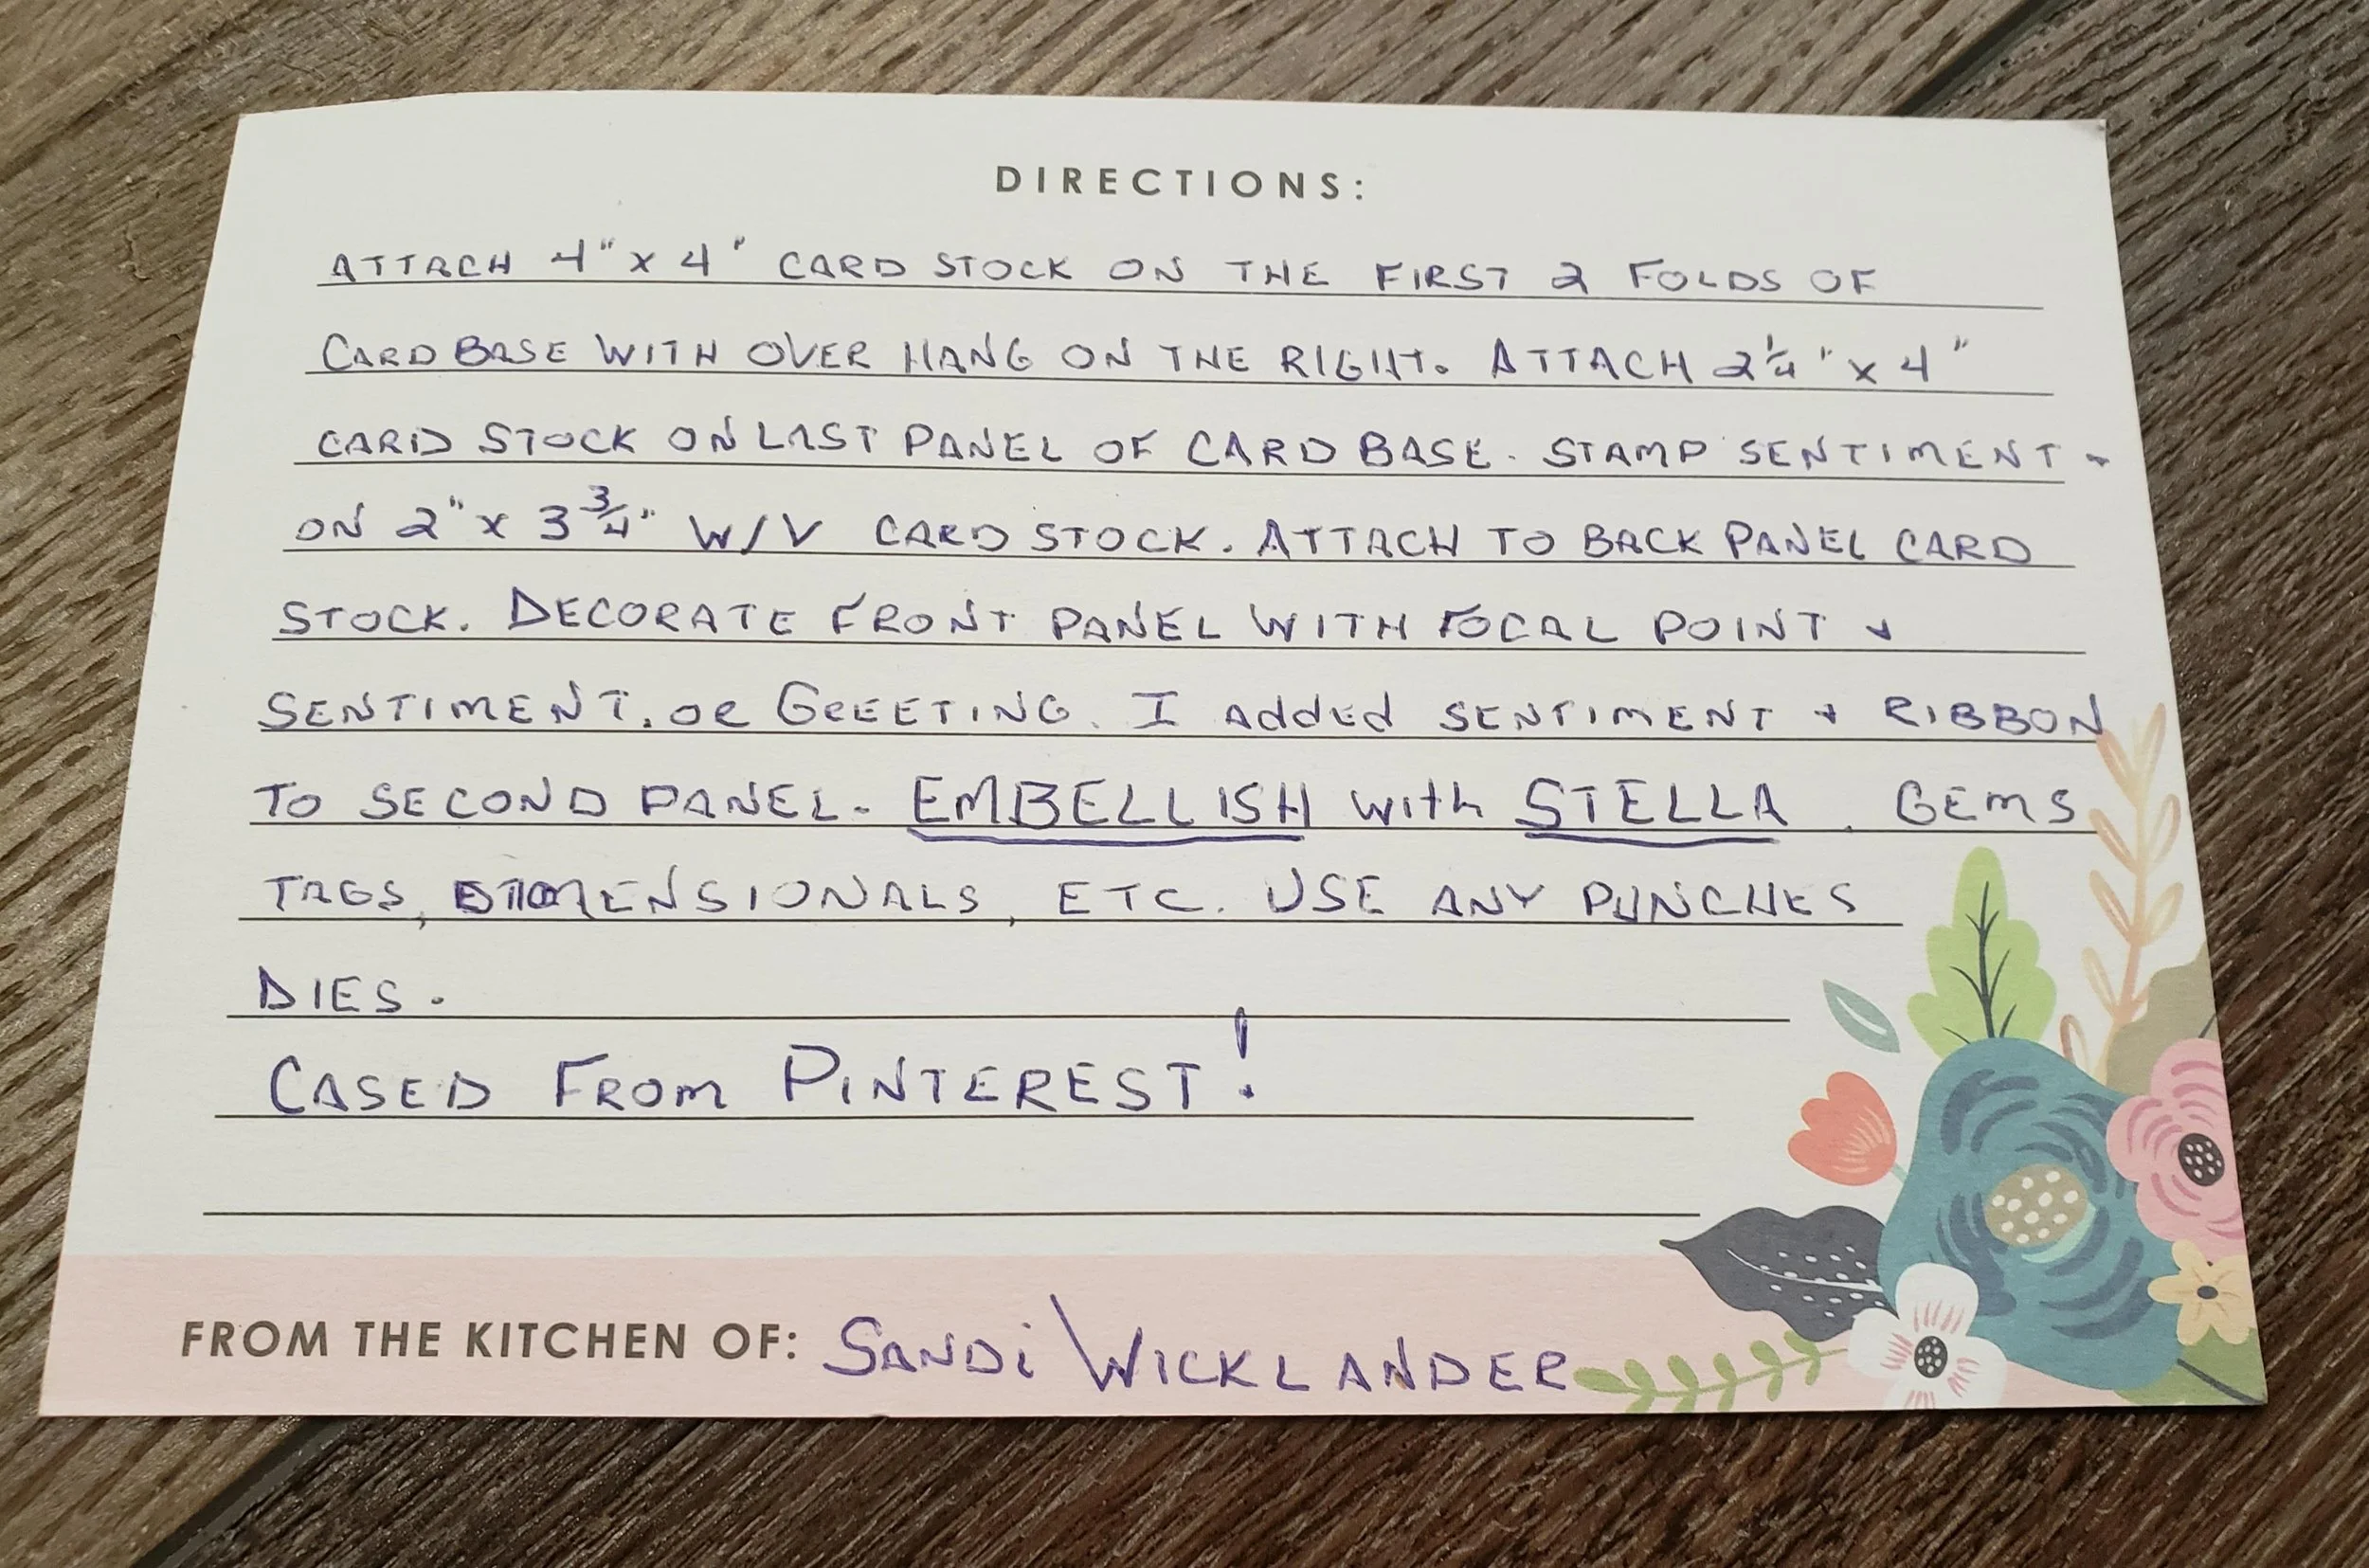 DIRECTIONS:
ATTACH 4" x 4" CARD STOCK ON THE FIRST 2 FOLDS OF
CARD BASE WITH OVER HANG ON THE RIGHT. ATTACH 2 1/4" x 4"
CARD STOCK ON LAST PANEL OF CARD BASE. STAMP SENTIMENT -
ON 2" x 3 3/4" W/V CARD STOCK. ATTACH TO BACK PANEL CARD
STOCK. DECORATE FRONT PANEL WITH FOCAL POINT +
SENTIMENT. OR GREETING. I Added SENTIMENT + RIBBON
TO SECOND PANEL. EMBELLISH with STELLA. GEMS
TAGS, DIMENSIONALS, ETC. USE ANY PUNCHES
DIES.
CASED FROM PINTEREST!
FROM THE KITCHEN OF: SANDi WICKLANDER